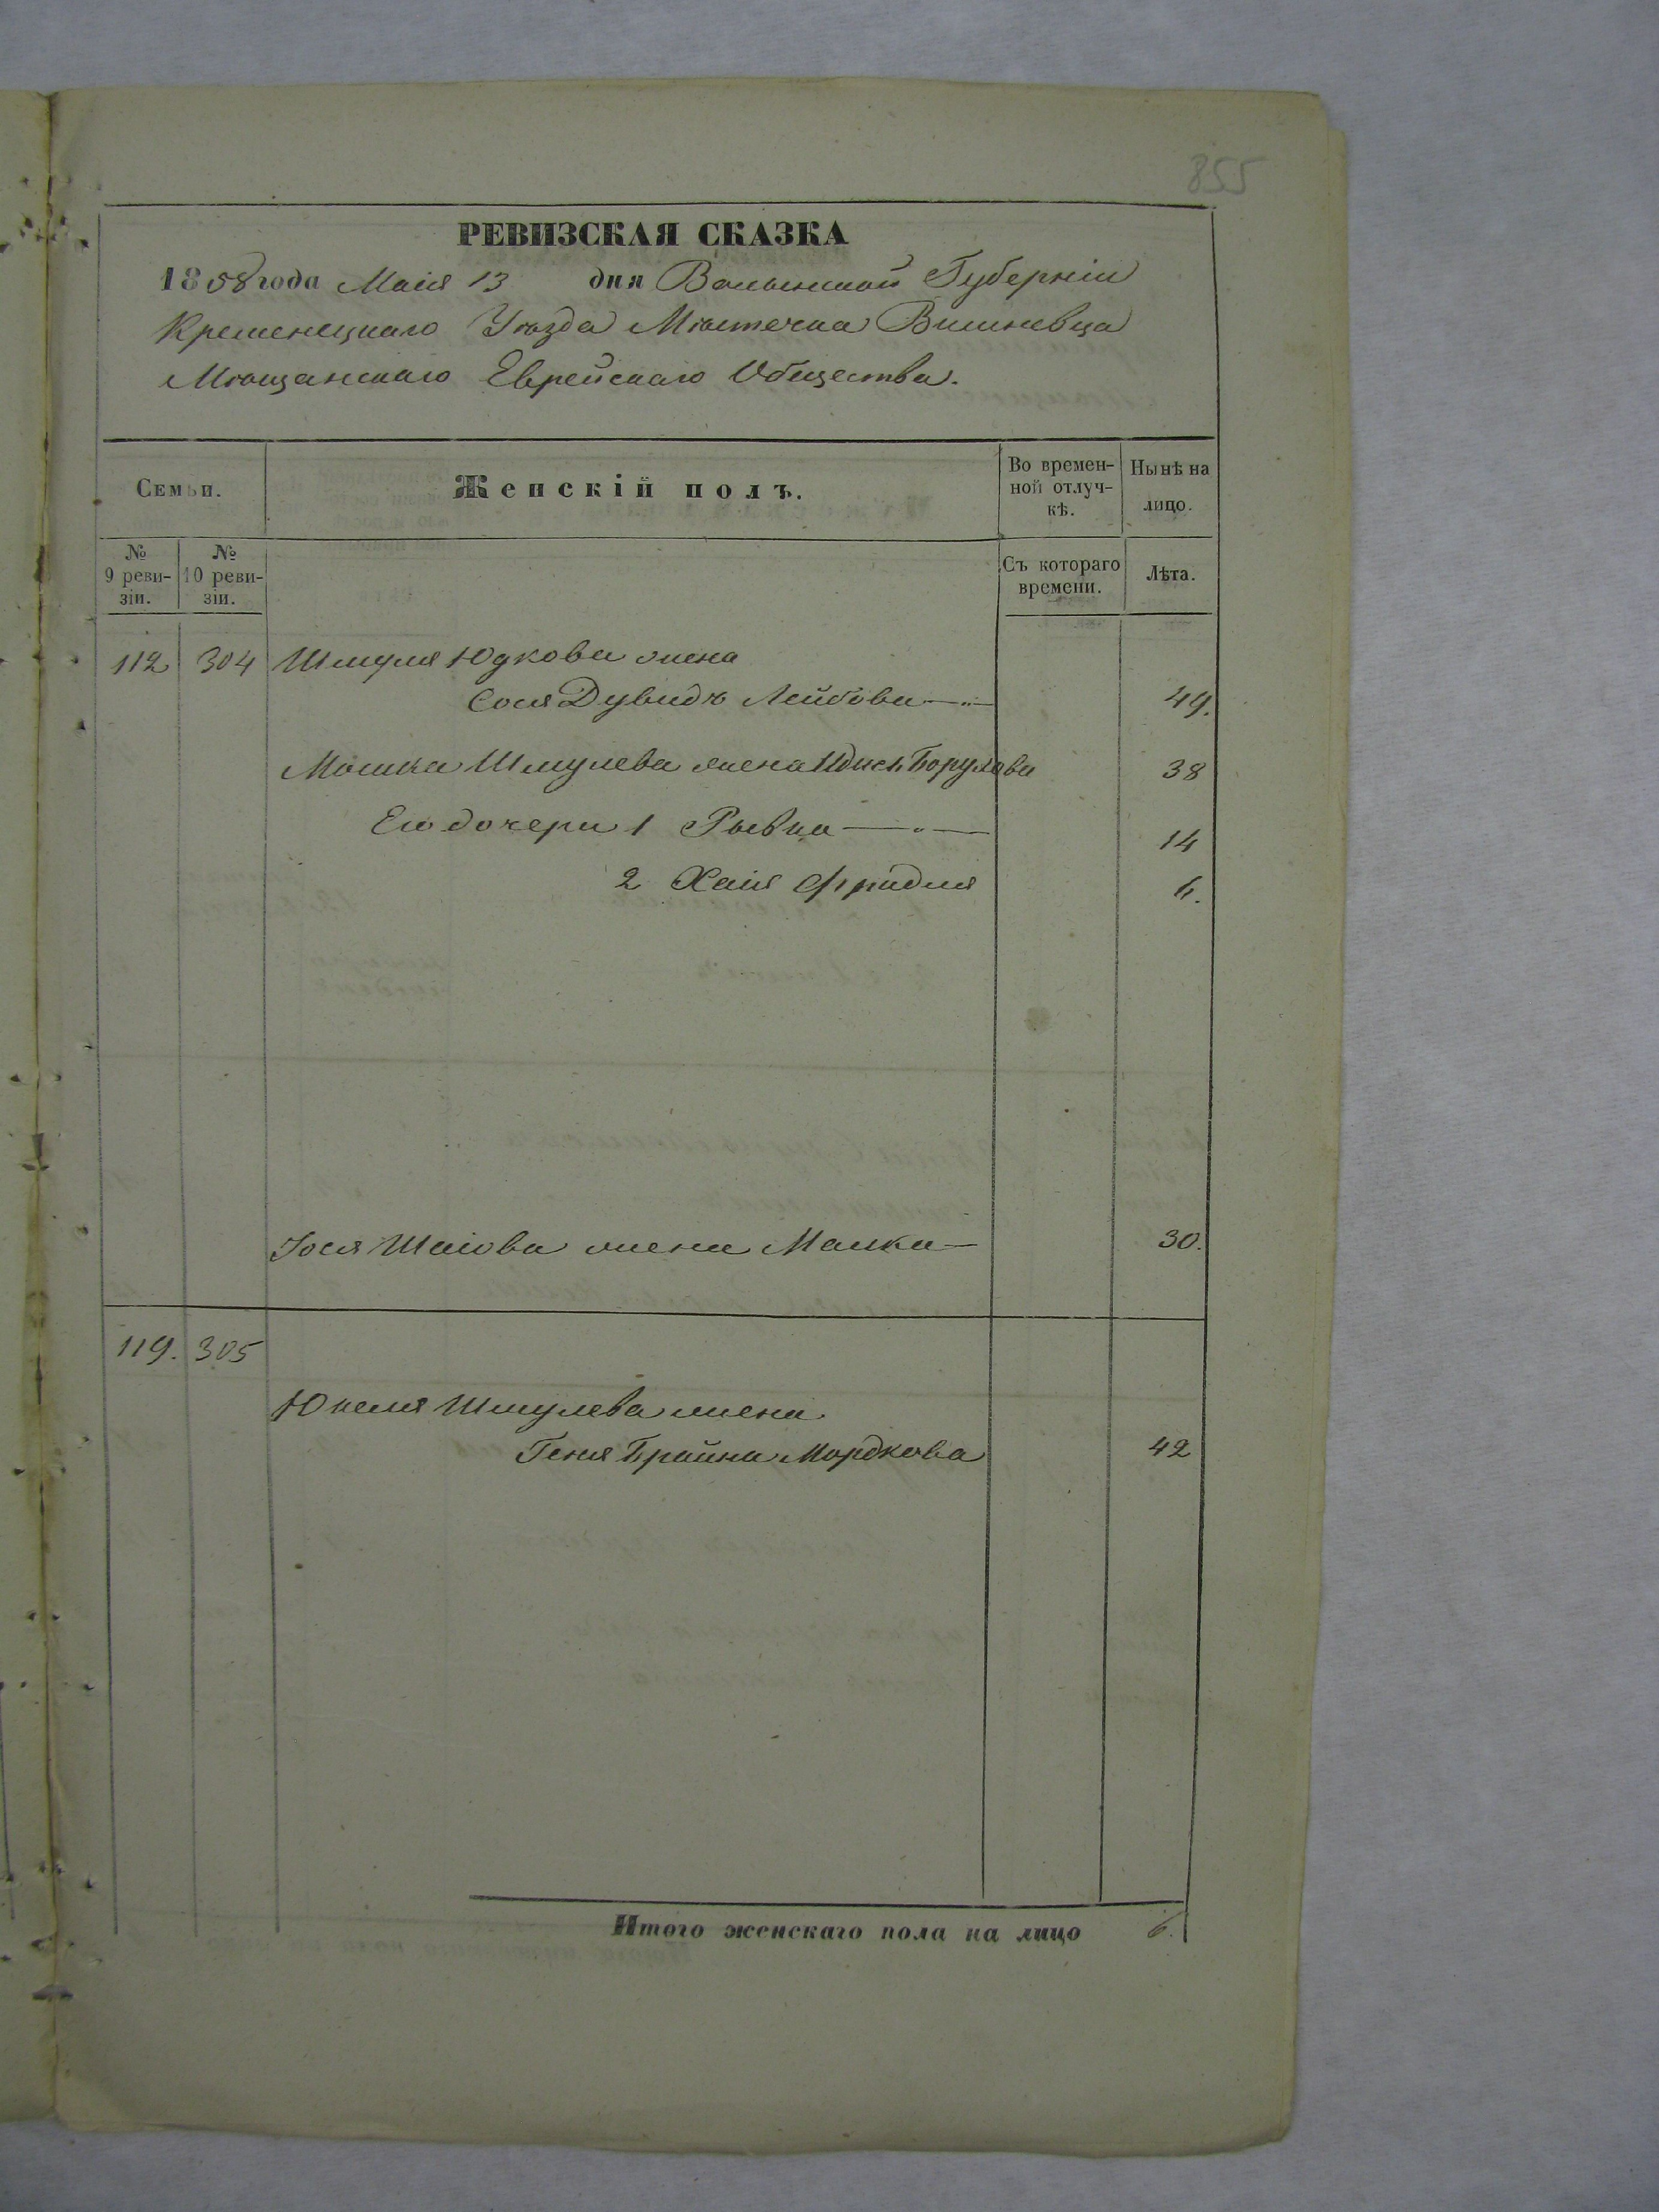 855
РЕВИЗСКАЯ СКАЗКА
1858 года Маія 13 дня Волынской Губерніи
Кременецкаго Уѣзда Мѣстечка Вишневца
Мѣщанскаго Еврейскаго Общества.
Семьи.
Женскій полъ.
Во времен-
ной отлуч-
кѣ.
Нынѣ на
лицо.
№
9 реви-
зіи.
№
10 реви-
зіи.
Съ котораго
времени.
Лѣта.
112 304 Шмуля Юдкова жена
Сося Дувидъ Лейбова 49.
Мошка Шмулева жена Идись Борухова 38
Его дочери 1 Рывка 14
2 Хаія Фридля 6.
Іося Шаіова жена Малка 30.
119. 305
Юкеля Шмулева жена
Геня Брайна Мордкова 42
Итого женскаго пола на лицо 6.